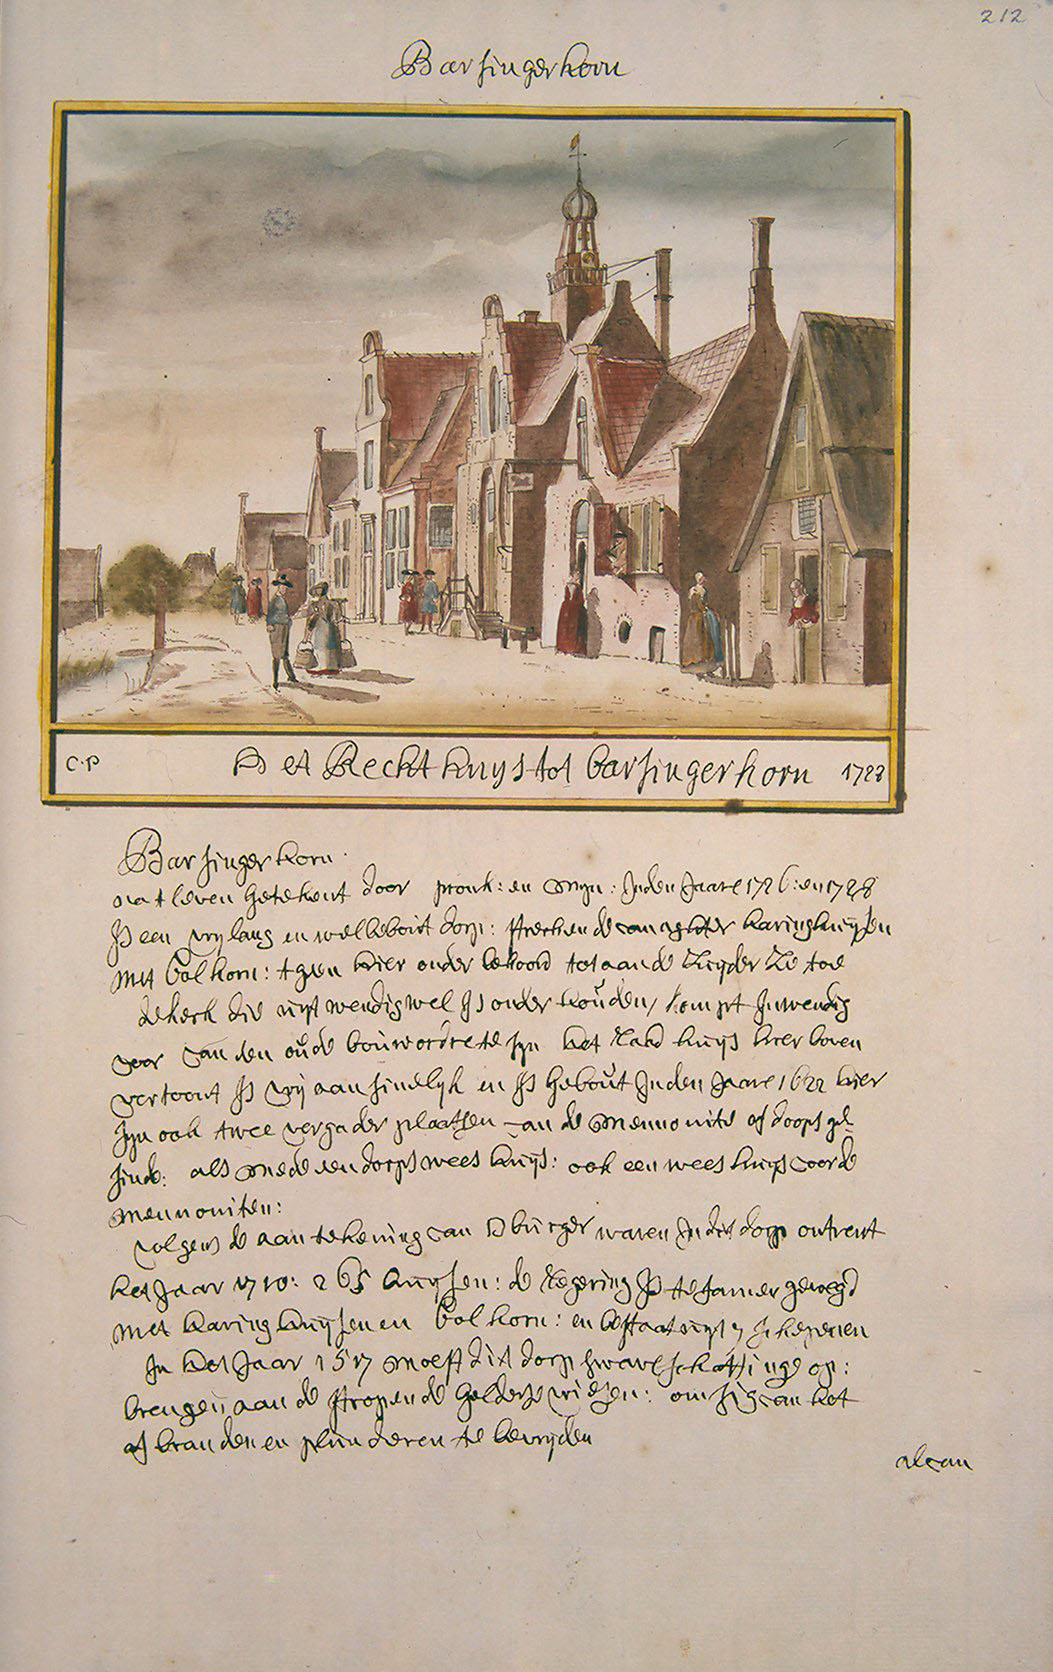 212
Barsingerhorn
C·P Het Recht huys tot barsingerhorn 1728
Barsingerhorn.
na t leven getekent door pronk: en Myn: Inden Jaare 1726: en 1728
Is een vry lang en wel beboud dorp: streckende van agter haringhuysen
met Colhorn: t geen hier onder behoord tot aan de Zuyder Ze toe
de kerk die uyt wendig wel Is onder houden, komt Inwendig
voor van den oude bouwordre te syn het Raad huys hier boven
vertoont Is vry aansinelyk en Is gebout Inden Jaare 1622 hier
syn ook twee vergader plaatsen van de Mennonite of doops ge
sinde: als mede een dorps wees huys: ook een wees huys voor de
mennoniten:
volgens de aantekening van D burger waren In dit dorp ontrent
het Jaar 1710: 265 huysen: de Regering Is te samen gevoegd
met haringhuysen en Colhorn: en bestaat uyt 7 Schepenen
In het Jaar 1517 moest dit dorp swaare schattinge op:
brengen aan de stropende gelderse vriesen: om sig van het
af branden en plunderen te bevryden
alvan